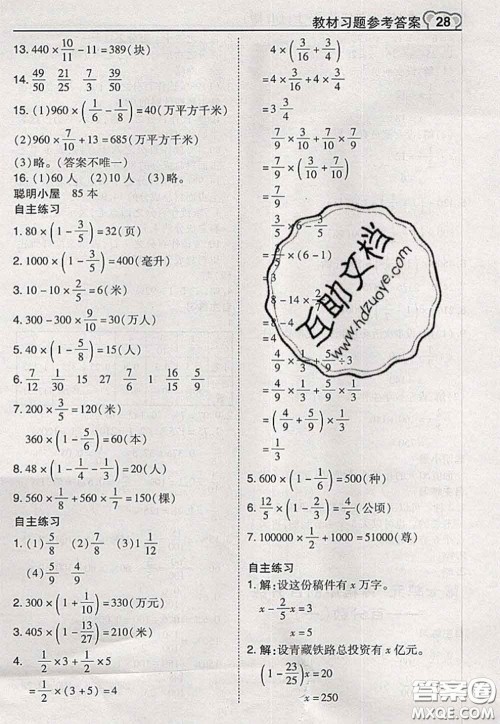 教材习题参考答案 28
13. 440×10/11-11=389(块)
14. 49/50 21/25 7/15 33/50
15. (1)960×(1/6-1/8)=40(万平方千米)
(2)960×7/10+13=685(万平方千米)
(3)略。(答案不唯一)
16. (1)60人 (2)10人 (3)略。
聪明小屋 85本
自主练习
1. 80×(1-3/5)=32(页)
2. 1000×(1-3/5)=400(毫升)
3. 10-2/5×10=6(米)
4. 300-300×9/10=30(人)
5. 40×(1-5/8)=15(人)
6. 7/12 1/30 15 27 7/6 1 16/15 4/9
7. 200×3/5=120(米)
360×(1-5/6)=60(本)
8. 48×(1-1/4-1/3)=20(人)
9. 560×(1/8+1/7)=150(棵)
自主练习
1. (1)5/8 (2)7/8 (3)1 1/12
(4)5/9 4/9
2. 300×(1-9/10)=30(万元)
3. 405×(1-19/210)=210(米)
4. 1/2×3+1/2×5
=1/2×(3+5)=4
=4×(3/16+3/4)
=4×3/16+4×3/4
=3 3/4
7/9×3/10+7/10×7/9
=7/9×(3/10+7/10)
=7/9
×6-3/5
×(6-1)
8-14×
=8-
=
4/9×1/3+5/9÷3
=(4/9+5/9)×1/3
=1/3
5. 600×(1-1/6)=500(种)
6. 12/5×(1-5/6)=2/5(公顷)
7. 100000×1/2+1000=51000(尊)
自主练习
1. 解：设这份稿件有x万字。
x-2/5x=3
x=5
2. 解：设青藏铁路总投资有x亿元。
(1-23/25)x=20
x=250
互助文档
www.hdzuoye.com
答案圈
MXQE.COM